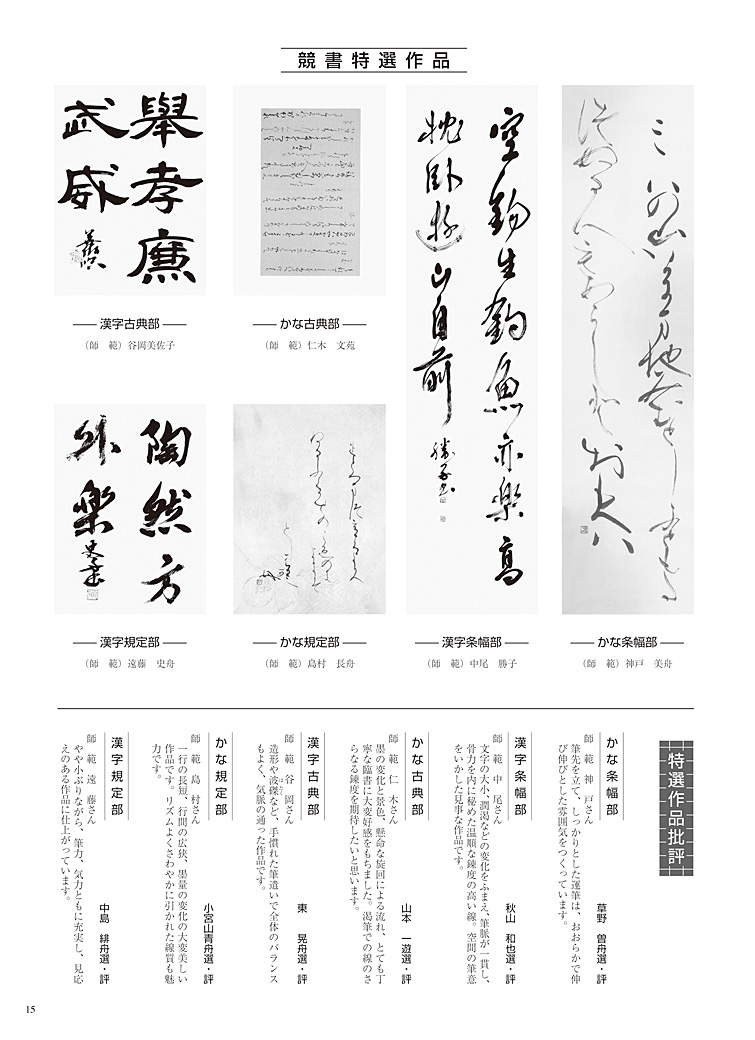 競書特選作品
舉孝廉
武威
漢字古典部
(師　範) 谷岡美佐子
かな古典部
(師　範) 仁木　文苑
陶然方
外樂
史舟書
漢字規定部
(師　範) 遠藤　史舟
かな規定部
(師　範) 島村　長舟
空鈎生鈎魚亦樂高
枕臥遊山自前
漢字条幅部
(師　範) 中尾　勝子
かな条幅部
(師　範) 神戸　美舟
特選作品批評
かな条幅部
草野　曽舟選・評
師　範　神　戸さん
筆先を立て、しっかりとした運筆は、おおらかで伸
び伸びとした雰囲気をつくっています。
漢字条幅部
秋山　和也選・評
師　範　中　尾さん
文字の大小、潤渇などの変化をふまえ、筆脈が一貫し、
骨力を内に秘めた温順な錬度の高い線。空間の筆意
をいかした見事な作品です。
かな古典部
山本　一遊選・評
師　範　仁　木さん
墨の変化と景色、懸命な旋回による流れ、とても丁
寧な臨書に大変好感をもちました。渇筆での線のさ
らなる錬度を期待したいと思います。
漢字古典部
東　晃舟選・評
師　範　谷　岡さん
造形や波磔など、手慣れた筆遣いで全体のバランス
もよく、気脈の通った作品です。
かな規定部
小宮山青舟選・評
師　範　島　村さん
一行の長短、行間の広狭、墨量の変化の大変美しい
作品です。リズムよくさわやかに引かれた線質も魅
力です。
漢字規定部
中島　緋舟選・評
師　範　遠　藤さん
やや小ぶりながら、筆力、気力ともに充実し、見応
えのある作品に仕上がっています。
15